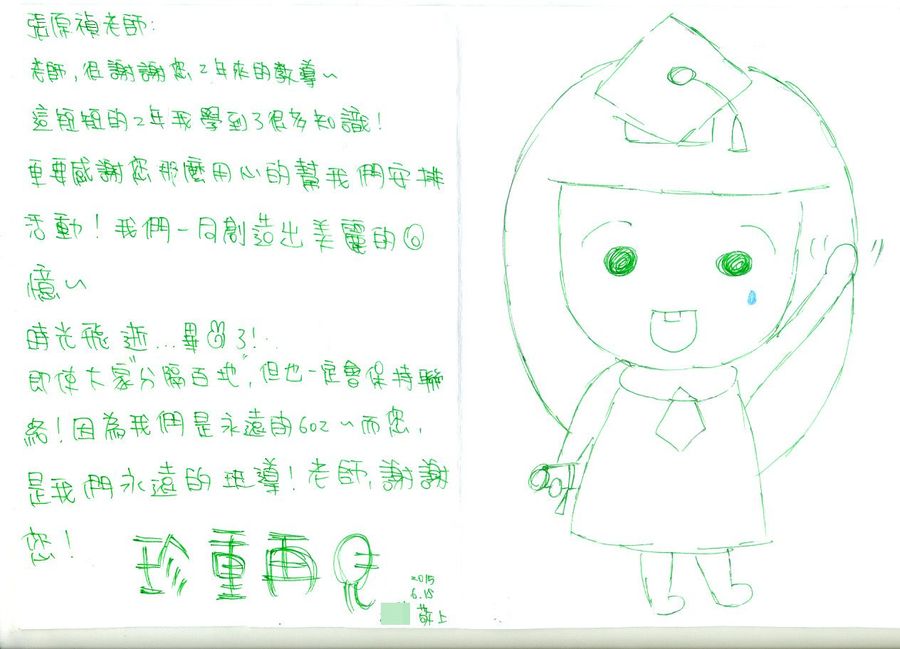 張原禎老師:
老師,很謝謝您2年來的教導~
這短短的2年我學到了很多知識!
重要感謝您那麼用心的幫我們安排
活動!我們一同創造出美麗的回
憶~
時光飛逝...畢業了!
即使大家"分隔百地",但也一定會保持聯
絡!因為我們是永遠的602~而您,
是我們永遠的班導!老師,謝謝
您!
珍重再見
2015
6.15
敬上